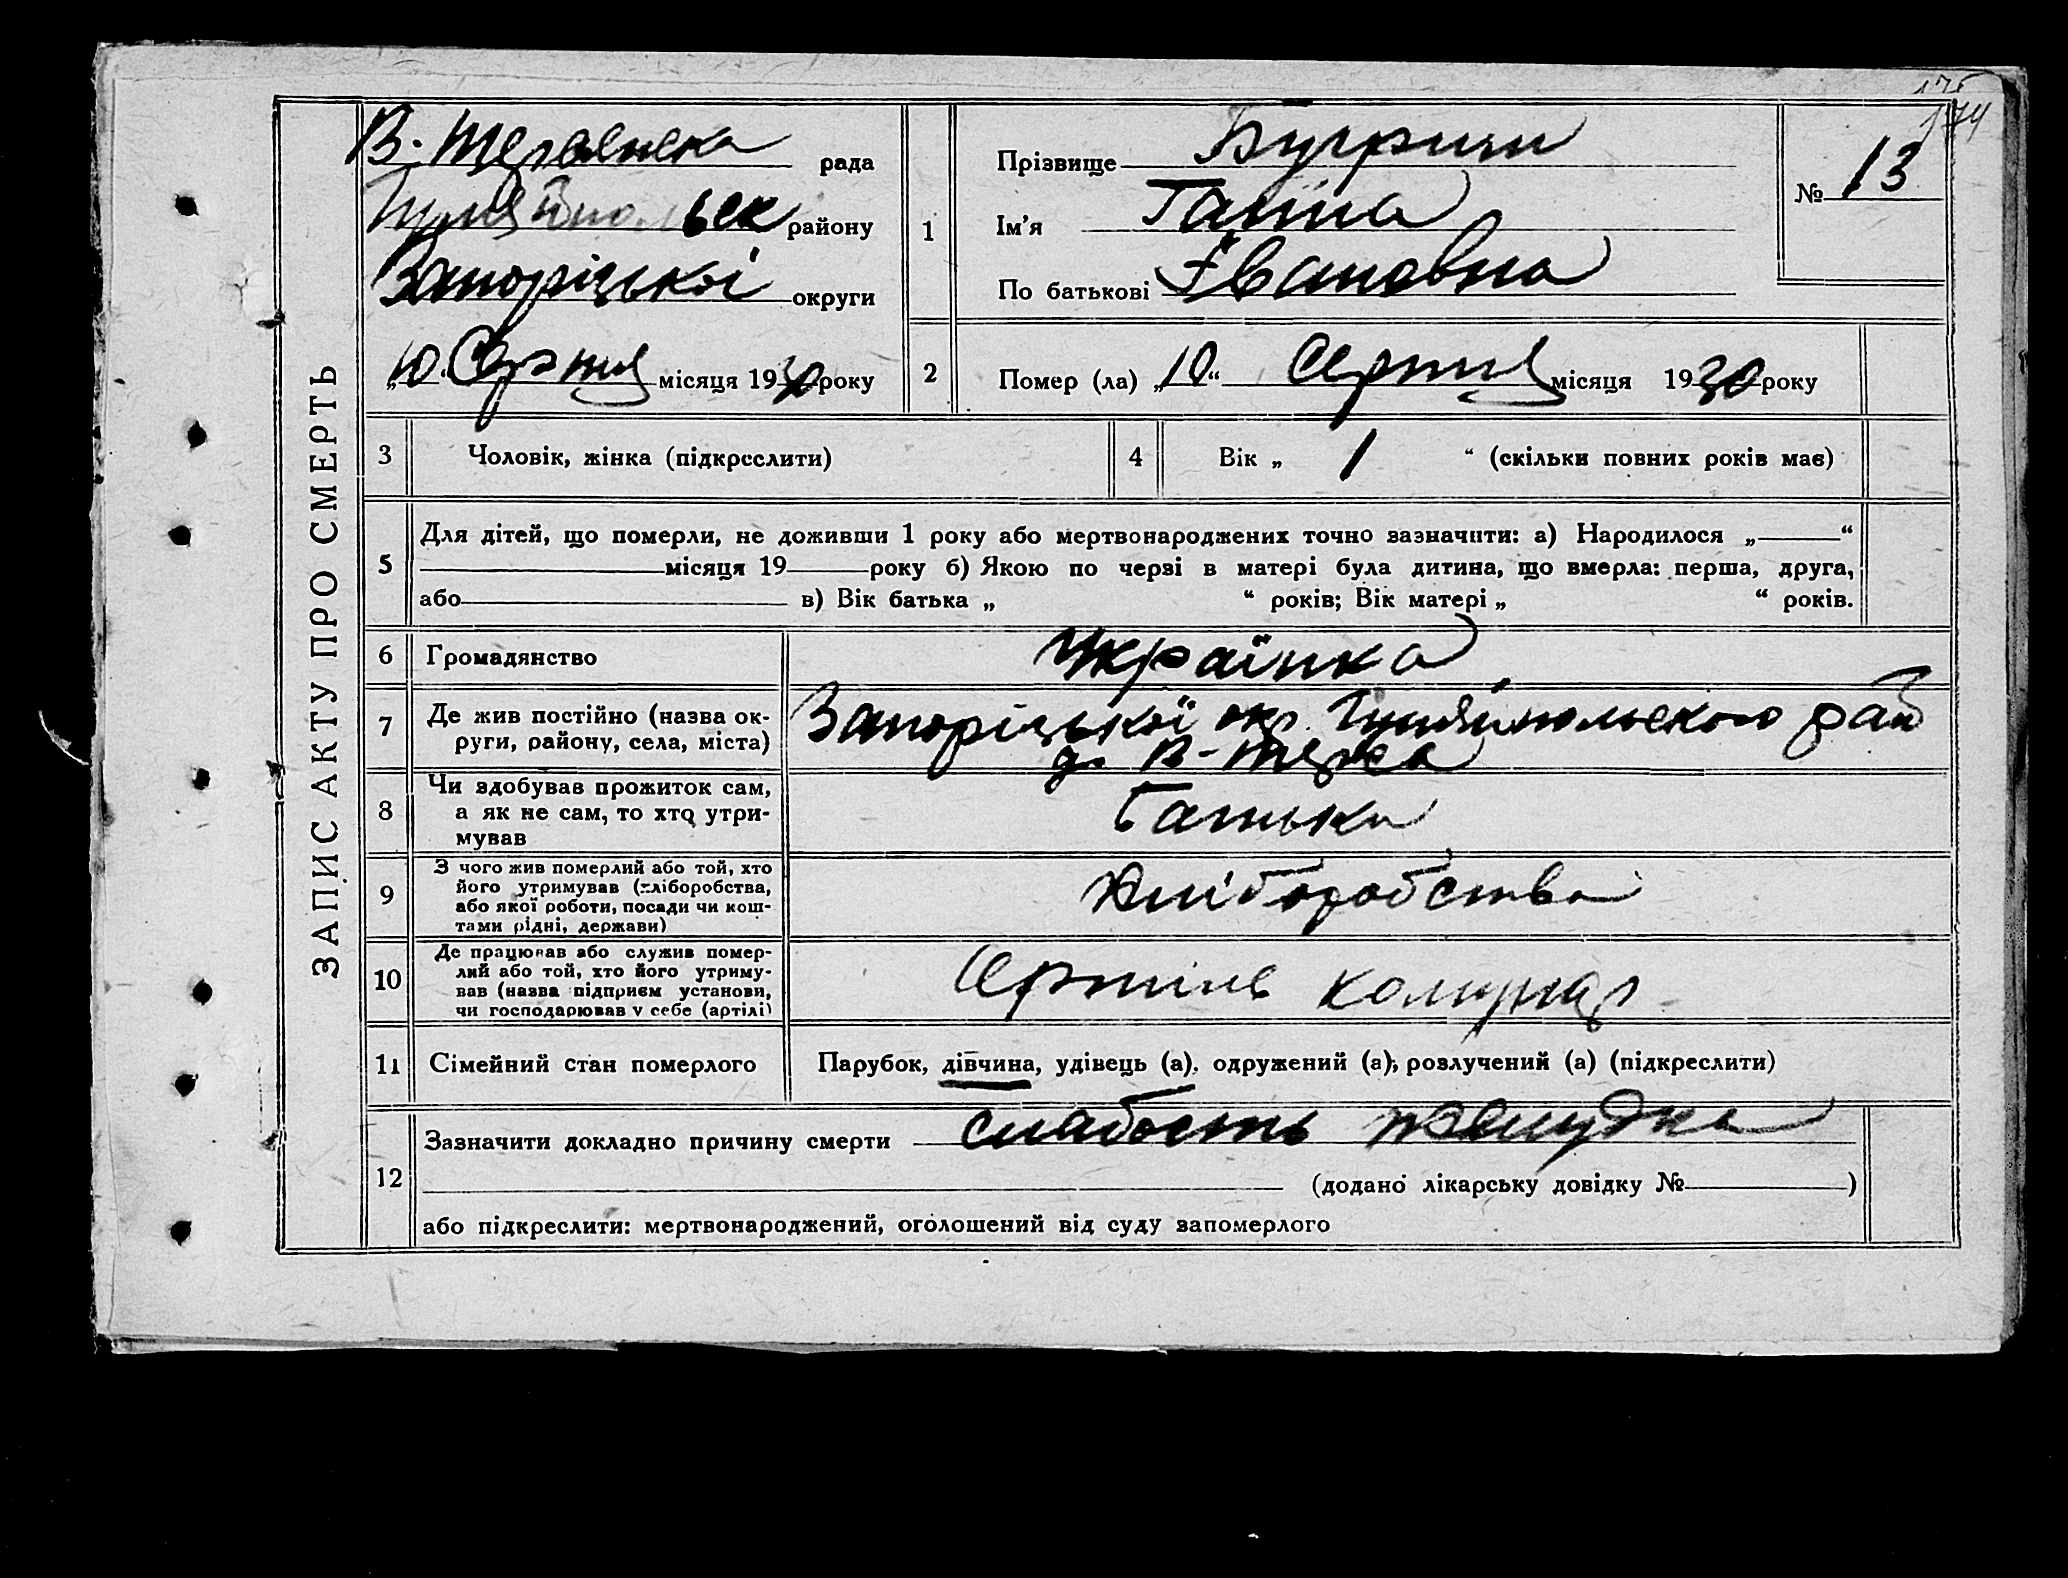 174
ЗАПИС АКТУ ПРО СМЕРТЬ
рада
Гуляйпольськ району
Запоріцької округи
„10" Серпня місяця 1930 року
1
Прізвище
Ім'я Ганна
По батькові Івановна
№ 13
2
Помер (ла) „10" Серпня місяця 1930 року
3 Чоловік, жінка (підкреслити)
4 Вік „ 1 " (скільки повних років має)
5 Для дітей, що померли, не доживши 1 року або мертвонароджених точно зазначити: а) Народилося „ "
місяця 19 року б) Якою по черзі в матері була дитина, що вмерла: перша, друга,
або в) Вік батька „ " років; Вік матері „ " років.
6 Громадянство Українка
7 Де жив постійно (назва ок-
руги, району, села, міста)
Запоріцької окр. Гуляйпольського рай
8 Чи здобував прожиток сам,
а як не сам, то хто утри-
мував
Батько
9 З чого жив померлий або той, хто
його утримував (хліборобства,
або якої роботи, посади чи кош-
тами рідні, держави)
Хліборобства
10 Де працював або служив помер-
лий або той, хто його утриму-
вав (назва підприєм установи,
чи господарював у себе (артілі)
11 Сімейний стан померлого Парубок, дівчина, удівець (а), одружений (а), розлучений (а) (підкреслити)
12 Зазначити докладно причину смерти слабость желудка
(додано лікарську довідку № )
або підкреслити: мертвонароджений, оголошений від суду запомерлого